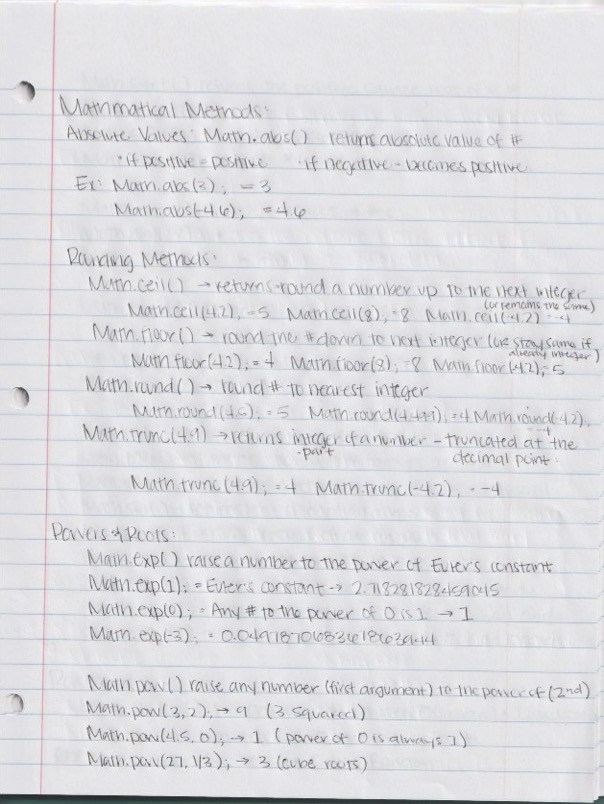 Mathmatical Methods:
Absolute Values: Math.abs() returns absolute value of #
· if positive = positive · if negative - becomes positive
Ex: Math.abs(3); = 3
Math.abs(-4.6); = 4.6
Rounding Methods:
Math.ceil() → returns-round a number up to the next integer
(or remains the same)
Math.ceil(4.2); = 5 Math.ceil(8); = 8 Math.ceil(-4.2) = -4
Math.floor() → round the # down to next integer (or stay same if
already integer)
Math.floor(4.2); = 4 Math.floor(8); = 8 Math.floor(-4.2); = 5
Math.round() → round # to nearest integer
Math.round(4.5); = 5 Math.round(4.499); = 4 Math.round(-4.2);
-4
Math.trunc(4.9) → returns integer of a number - truncated at the
-part decimal point:
Math.trunc(4.9); = 4 Math.trunc(-4.2); = -4
Powers & Roots:
Math.exp() raise a number to the power of Euler's constant
Math.exp(1); = Euler's constant → 2.718281828459045
Math.exp(0); = Any # to the power of 0 is 1 → 1
Math.exp(-3); =
Math.pow() raise any number (first argument) to the power of (2nd)
Math.pow(3,2); → 9 (3 squared)
Math.pow(4.5, 0); → 1 (power of 0 is always 1)
Math.pow(27, 1/3); → 3 (cube roots)